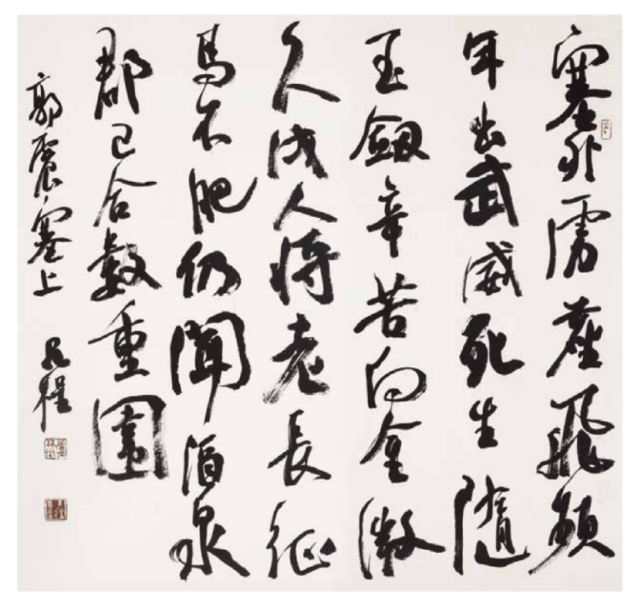 塞外虜塵飛頻
年出武威死生隨
玉劔辛苦向金微
久戍人將老長征
馬不肥仍聞酒泉
郡已合數重圍
郭震塞上